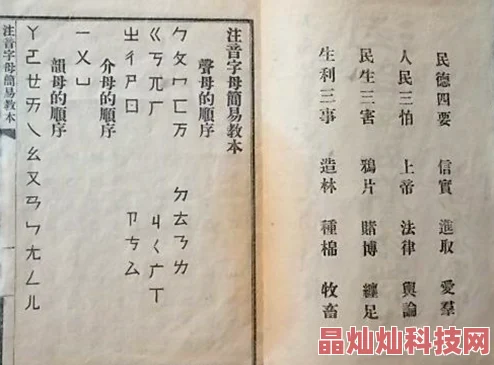 民德四要 信實 進取 愛羣
人民三怕 上帝 法律 輿論
民生三害 鴉片 賭博 纏足
生利三事 造林 種棉 牧畜
注音字母簡易教本
聲母的順序
ㄅㄆㄇㄈㄪ ㄉㄊㄋㄌ
ㄍㄎㄫㄏ ㄐㄑㄬㄒ
ㄓㄔㄕㄖ ㄗㄘㄙ
介母的順序
ㄧㄨㄩ
韻母的順序
ㄚㄛㄝㄞㄟㄠㄡㄢㄣㄤㄥㄦ
注音字母簡易教本
一
晶灿灿科技网